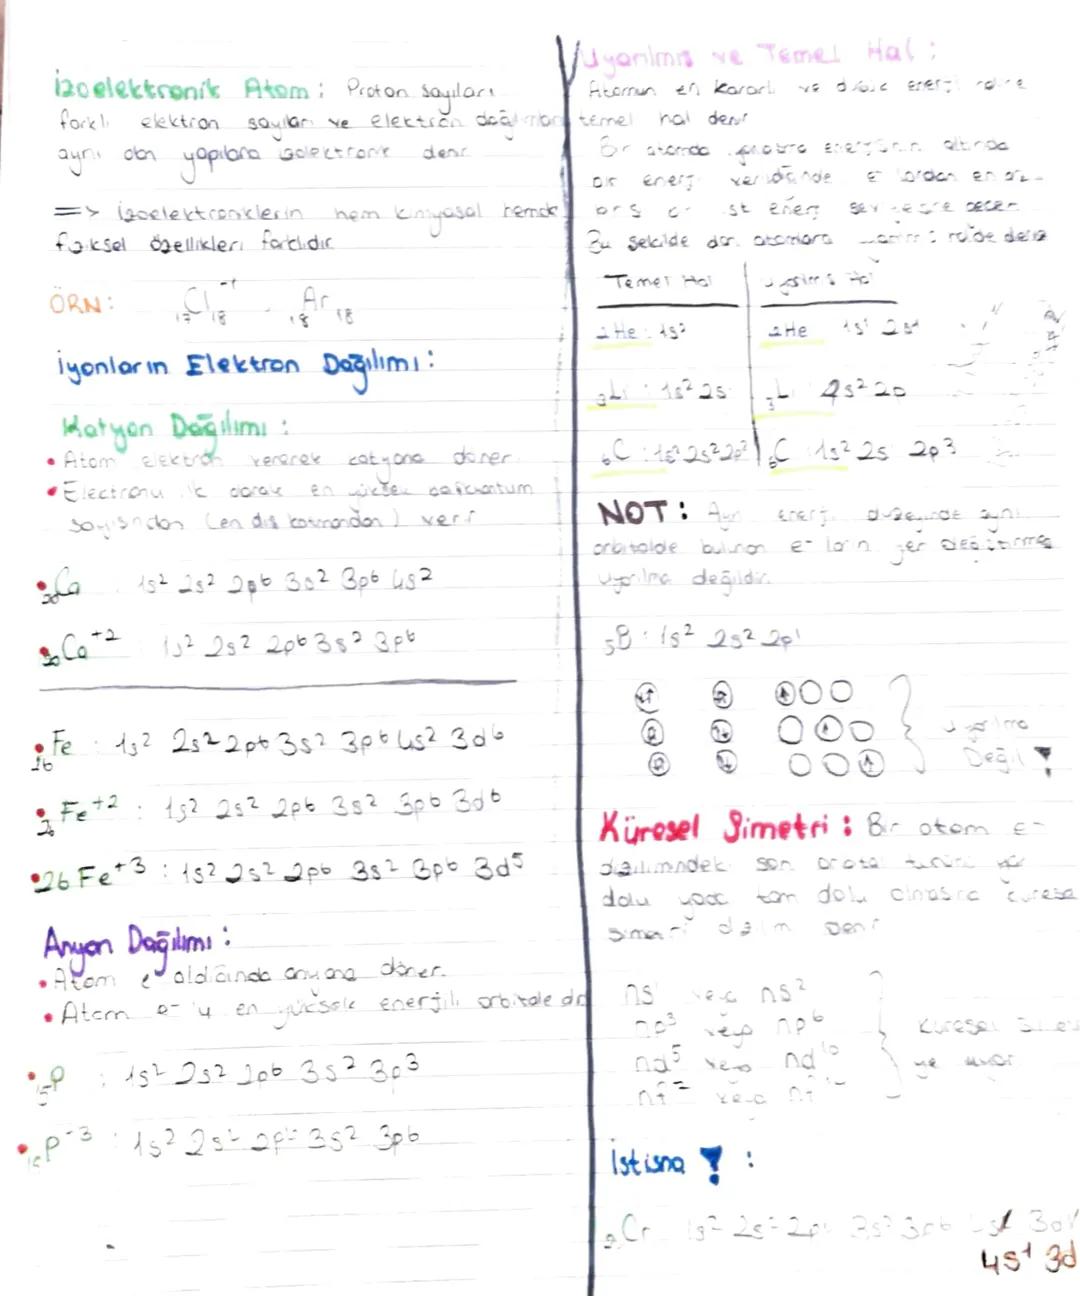 İzoelektronik Atom: Proton sayıları
farklı elektron sayıları ve elektron dağılımları
aynı olan yapılara izolektronik denir
=> izoelektroniklerin hem kimyasal hemde
fiziksel özellikleri farklıdır
ÖRN: 17Cl18-1 18Ar18
İyonların Elektron Dağılımı:
Katyon Dağılımı:
• Atom elektron vererek katyona döner.
• Electronu ilk olarak en yüksek baş kuantum
sayısından (en dış katmandan) verir
• 20Ca 1s² 2s² 2p6 3s² 3p6 4s²
• 20Ca+2 : 1s² 2s² 2p6 3s² 3p6
• 26Fe : 1s² 2s² 2p6 3s² 3p6 4s² 3d6
• 26Fe+2 : 1s² 2s² 2p6 3s² 3p6 3d6
• 26Fe+3 : 1s² 2s² 2p6 3s² 3p6 3d5
Anyon Dağılımı:
• Atom e- aldığında anyona döner.
• Atom e-'u en yüksek enerjili orbitale
• 15P : 1s² 2s² 2p6 3s² 3p3
• P-3 : 1s² 2s² 3s² 3p6
Uyarılmış ve Temel Hal:
Atomun en kararlı ve düşük enerjili haline
temel hal denir
Bir atomda enerjisinin altında
bir enerji verildiğinde e- lardan en az
st enerji seviyesine geçer
Bu şekilde atomlara denir
Temel Hal
Uyarılmış Hal
2He : 1s²
2He 1s¹ 2s¹
3Li : 1s² 2s
3Li 1s² 2p
6C : 1s² 2s² 2p²
6C : 1s² 2s 2p3
NOT: Aynı enerji düzeyinde aynı
orbitalde bulunan e- ların yer değiştirmesi
uyarılma değildir.
5B : 1s² 2s² 2p¹
Uyarılma
Değil !
Küresel Simetri: Bir atom e-
dağılımındaki son orbital türünü
dolu yada tam dolu olmasına küresel
simetri dağılım denir
ns¹ veya ns²
np3 veya np6
nd5 veya nd10
veya
Küresel
ye uyar
İstisna ! :
Cr 1s² 2s² 3s² 3p6
4s¹ 3d